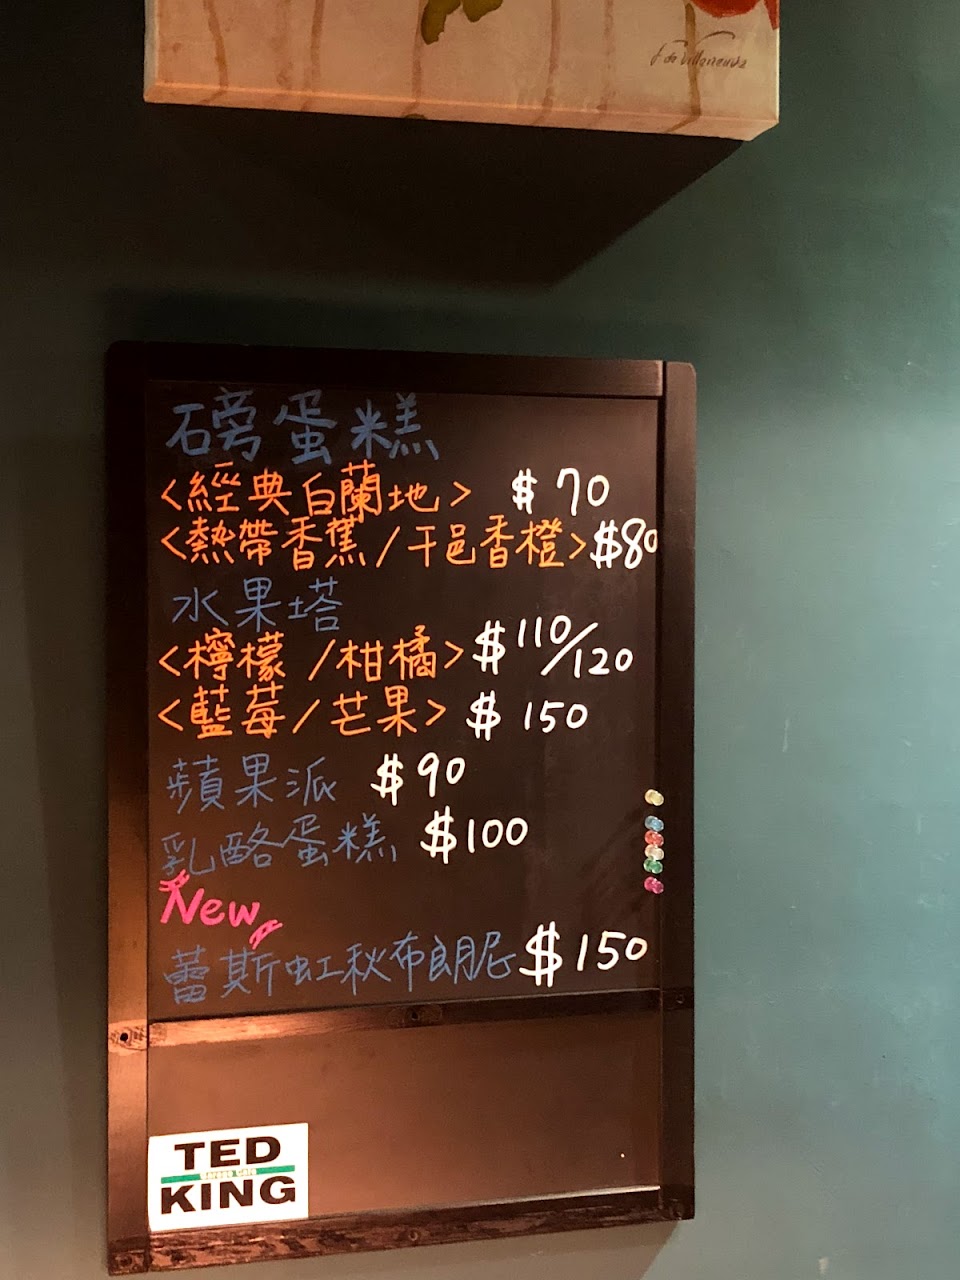 磅蛋糕
<經典白蘭地> $70
<熱帶香蕉/干邑香橙>$80
水果塔
<檸檬/柑橘>$110/120
<藍莓/芒果>$150
蘋果派 $90
乳酪蛋糕 $100
New
蕾斯虹秋布朗脆$150
TED
KING